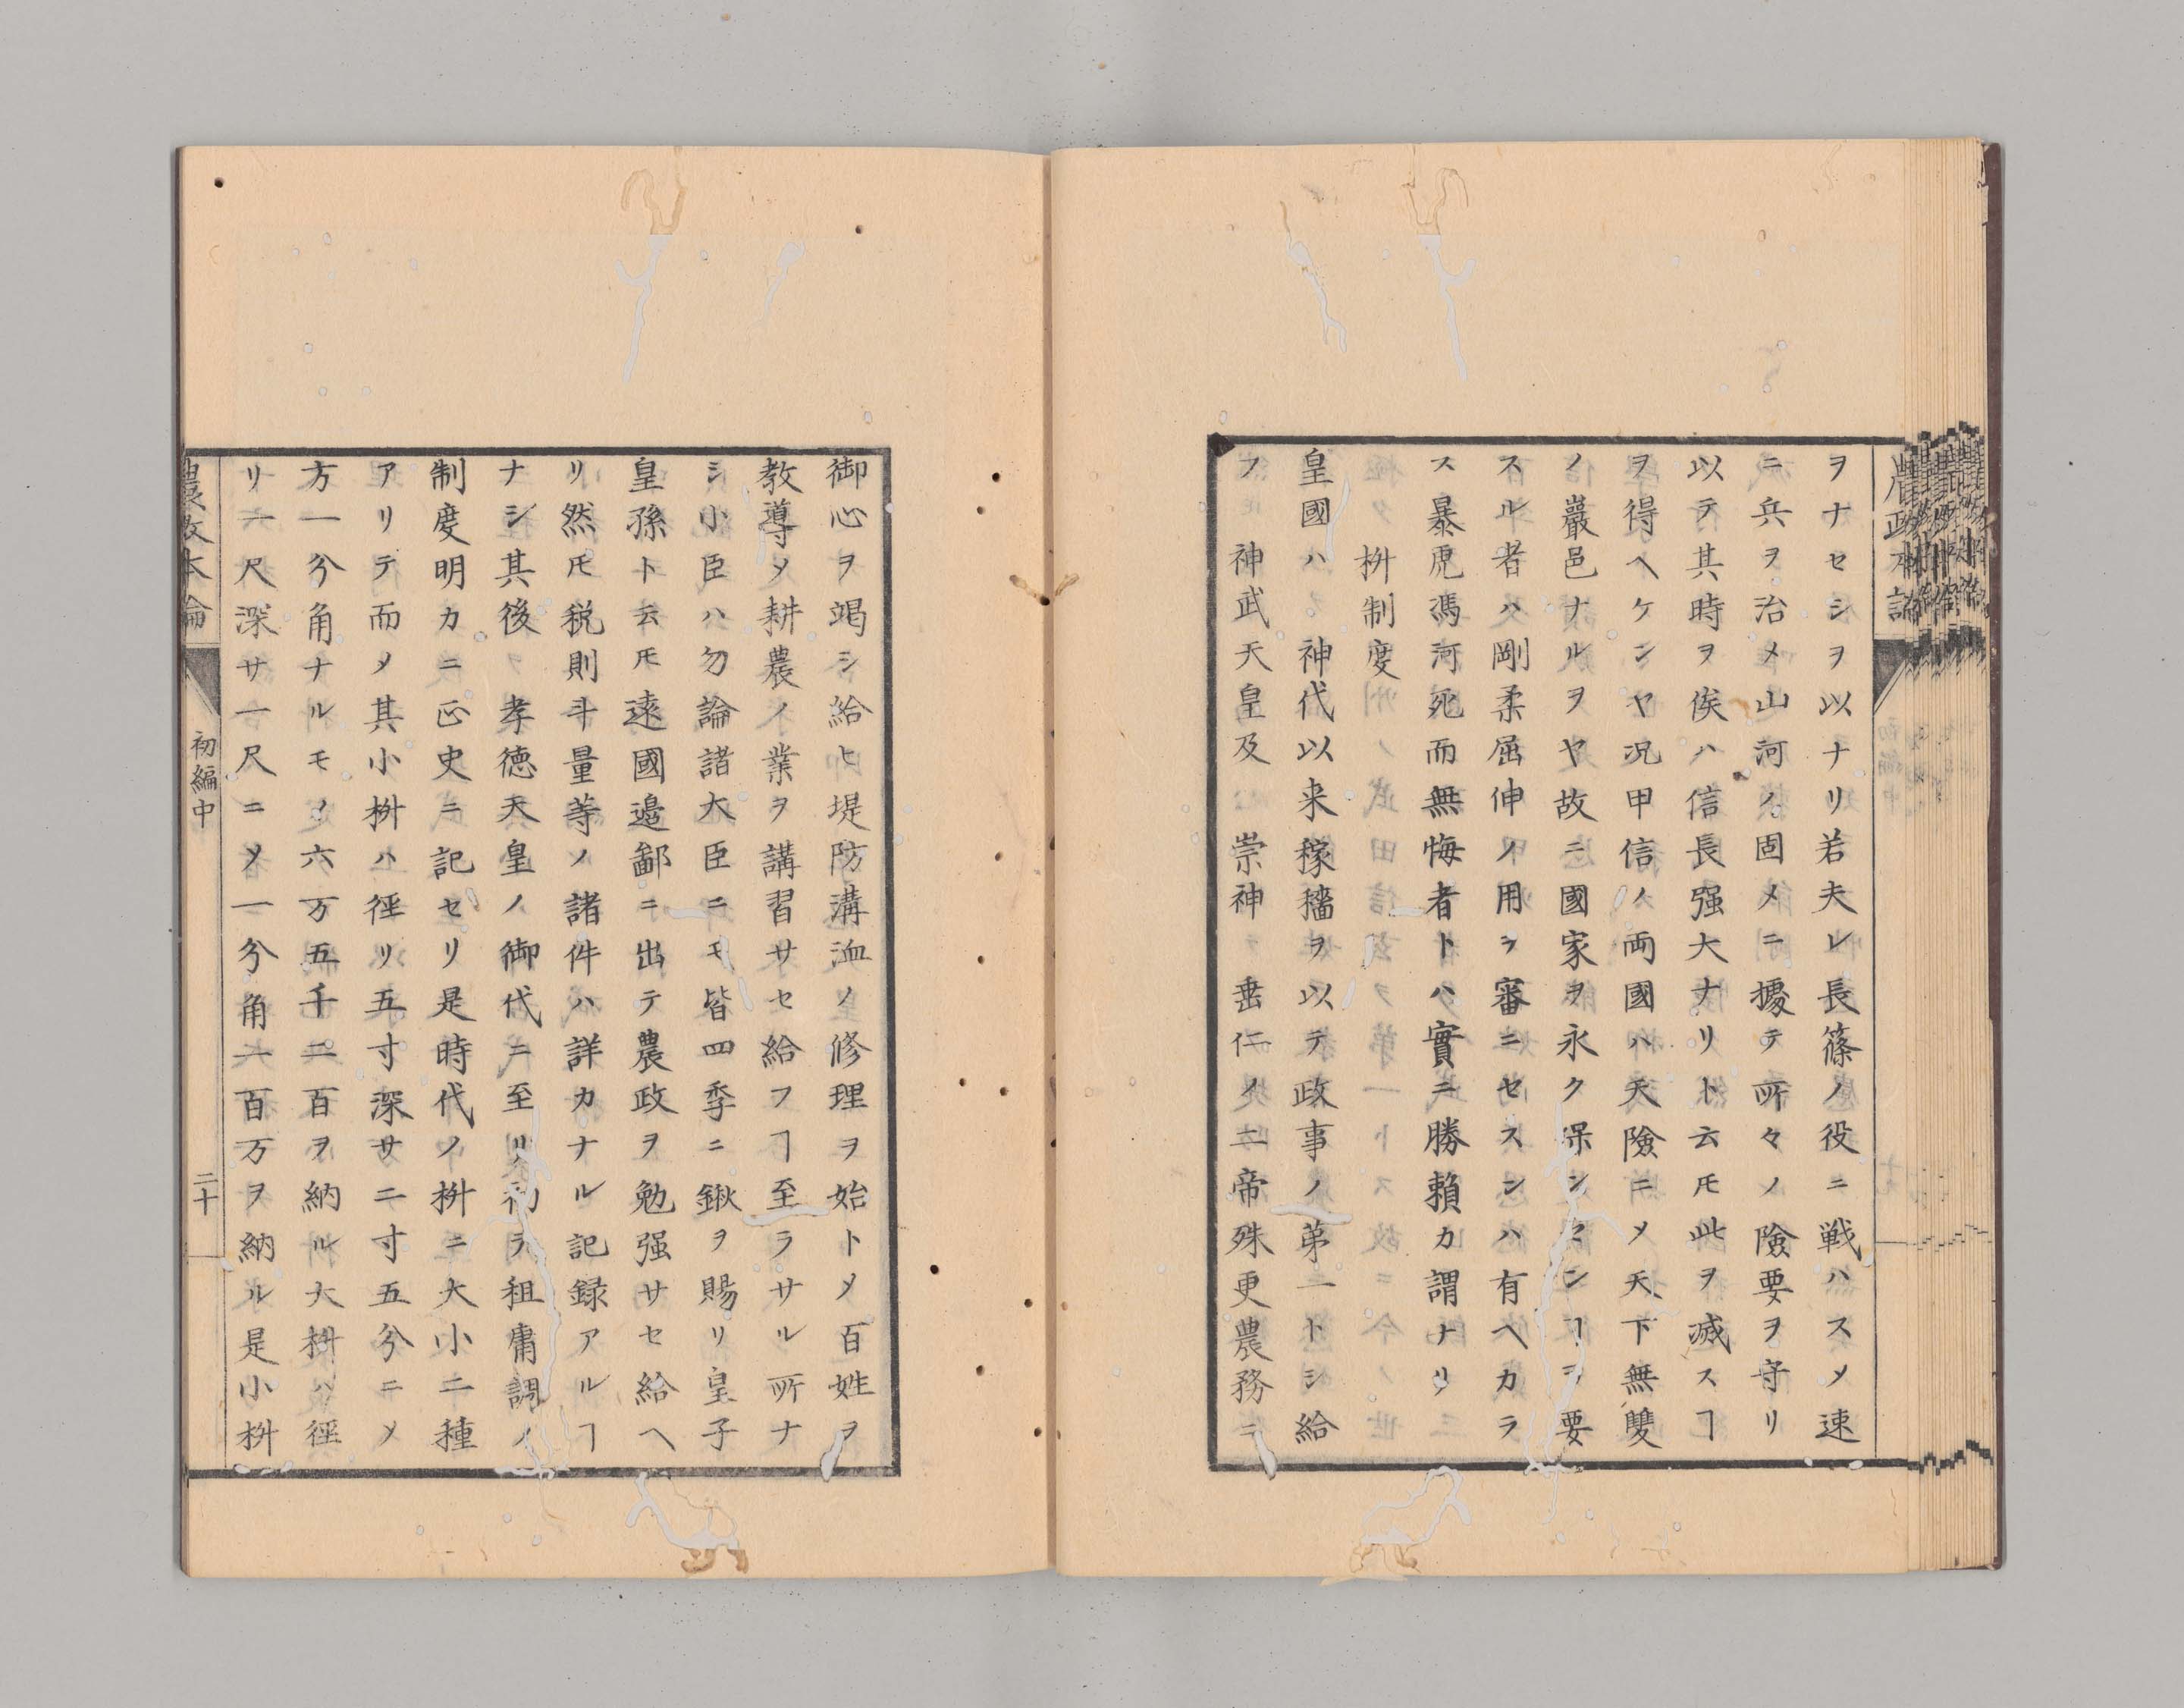 ヲナセシヲ以ナリ若夫レ長篠ノ役ニ戦ハスメ速
ニ兵ヲ治メ山河ノ固メニ據テ所々ノ險要ヲ守リ
以テ其時ヲ俟ハ信長强大ナリト云𪜈此ヲ滅スヿ
ヲ得ヘケンヤ况甲信ノ両國ハ天險ニメ天下無雙
ノ巖邑ナルヲヤ故ニ國家ヲ永ク保ンセンヿヲ要
スル者ハ剛柔屈伸ノ用ヲ審ニセスンハ有ヘカラ
ス暴虎馮河死而無悔者トハ實ニ勝賴カ謂ナリ
枡制度
皇國ハ神代以来稼穡ヲ以テ政事ノ第一トシ給
フ神武天皇及崇神垂仁ノ二帝殊更農務ニ
御心ヲ竭シ給ヒ堤防溝洫ノ修理ヲ始トメ百姓ヲ
教導メ耕農ノ業ヲ講習サセ給フヿ至ラサル所ナ
シ小臣ハ勿論諸大臣ニモ皆四季ニ鍬ヲ賜リ皇子
皇孫ト云𪜈遠國邉鄙ニ出テ農政ヲ勉强サセ給ヘ
リ然𪜈税則斗量等ノ諸件ハ詳カナル記録アルヿ
ナシ其後孝徳天皇ノ御代ニ至リ初テ租庸調ノ
制度明カニ正史ニ記セリ是時代ノ枡ニ大小二種
アリテ而メ其小枡ハ徑リ五寸深サ二寸五分ニメ
方一分角ナルモノ六万五千二百ヲ納ル大枡ハ徑
リ一尺深サ一尺ニメ一分角一百万ヲ納ル是小枡
農政本論
初編中
二十